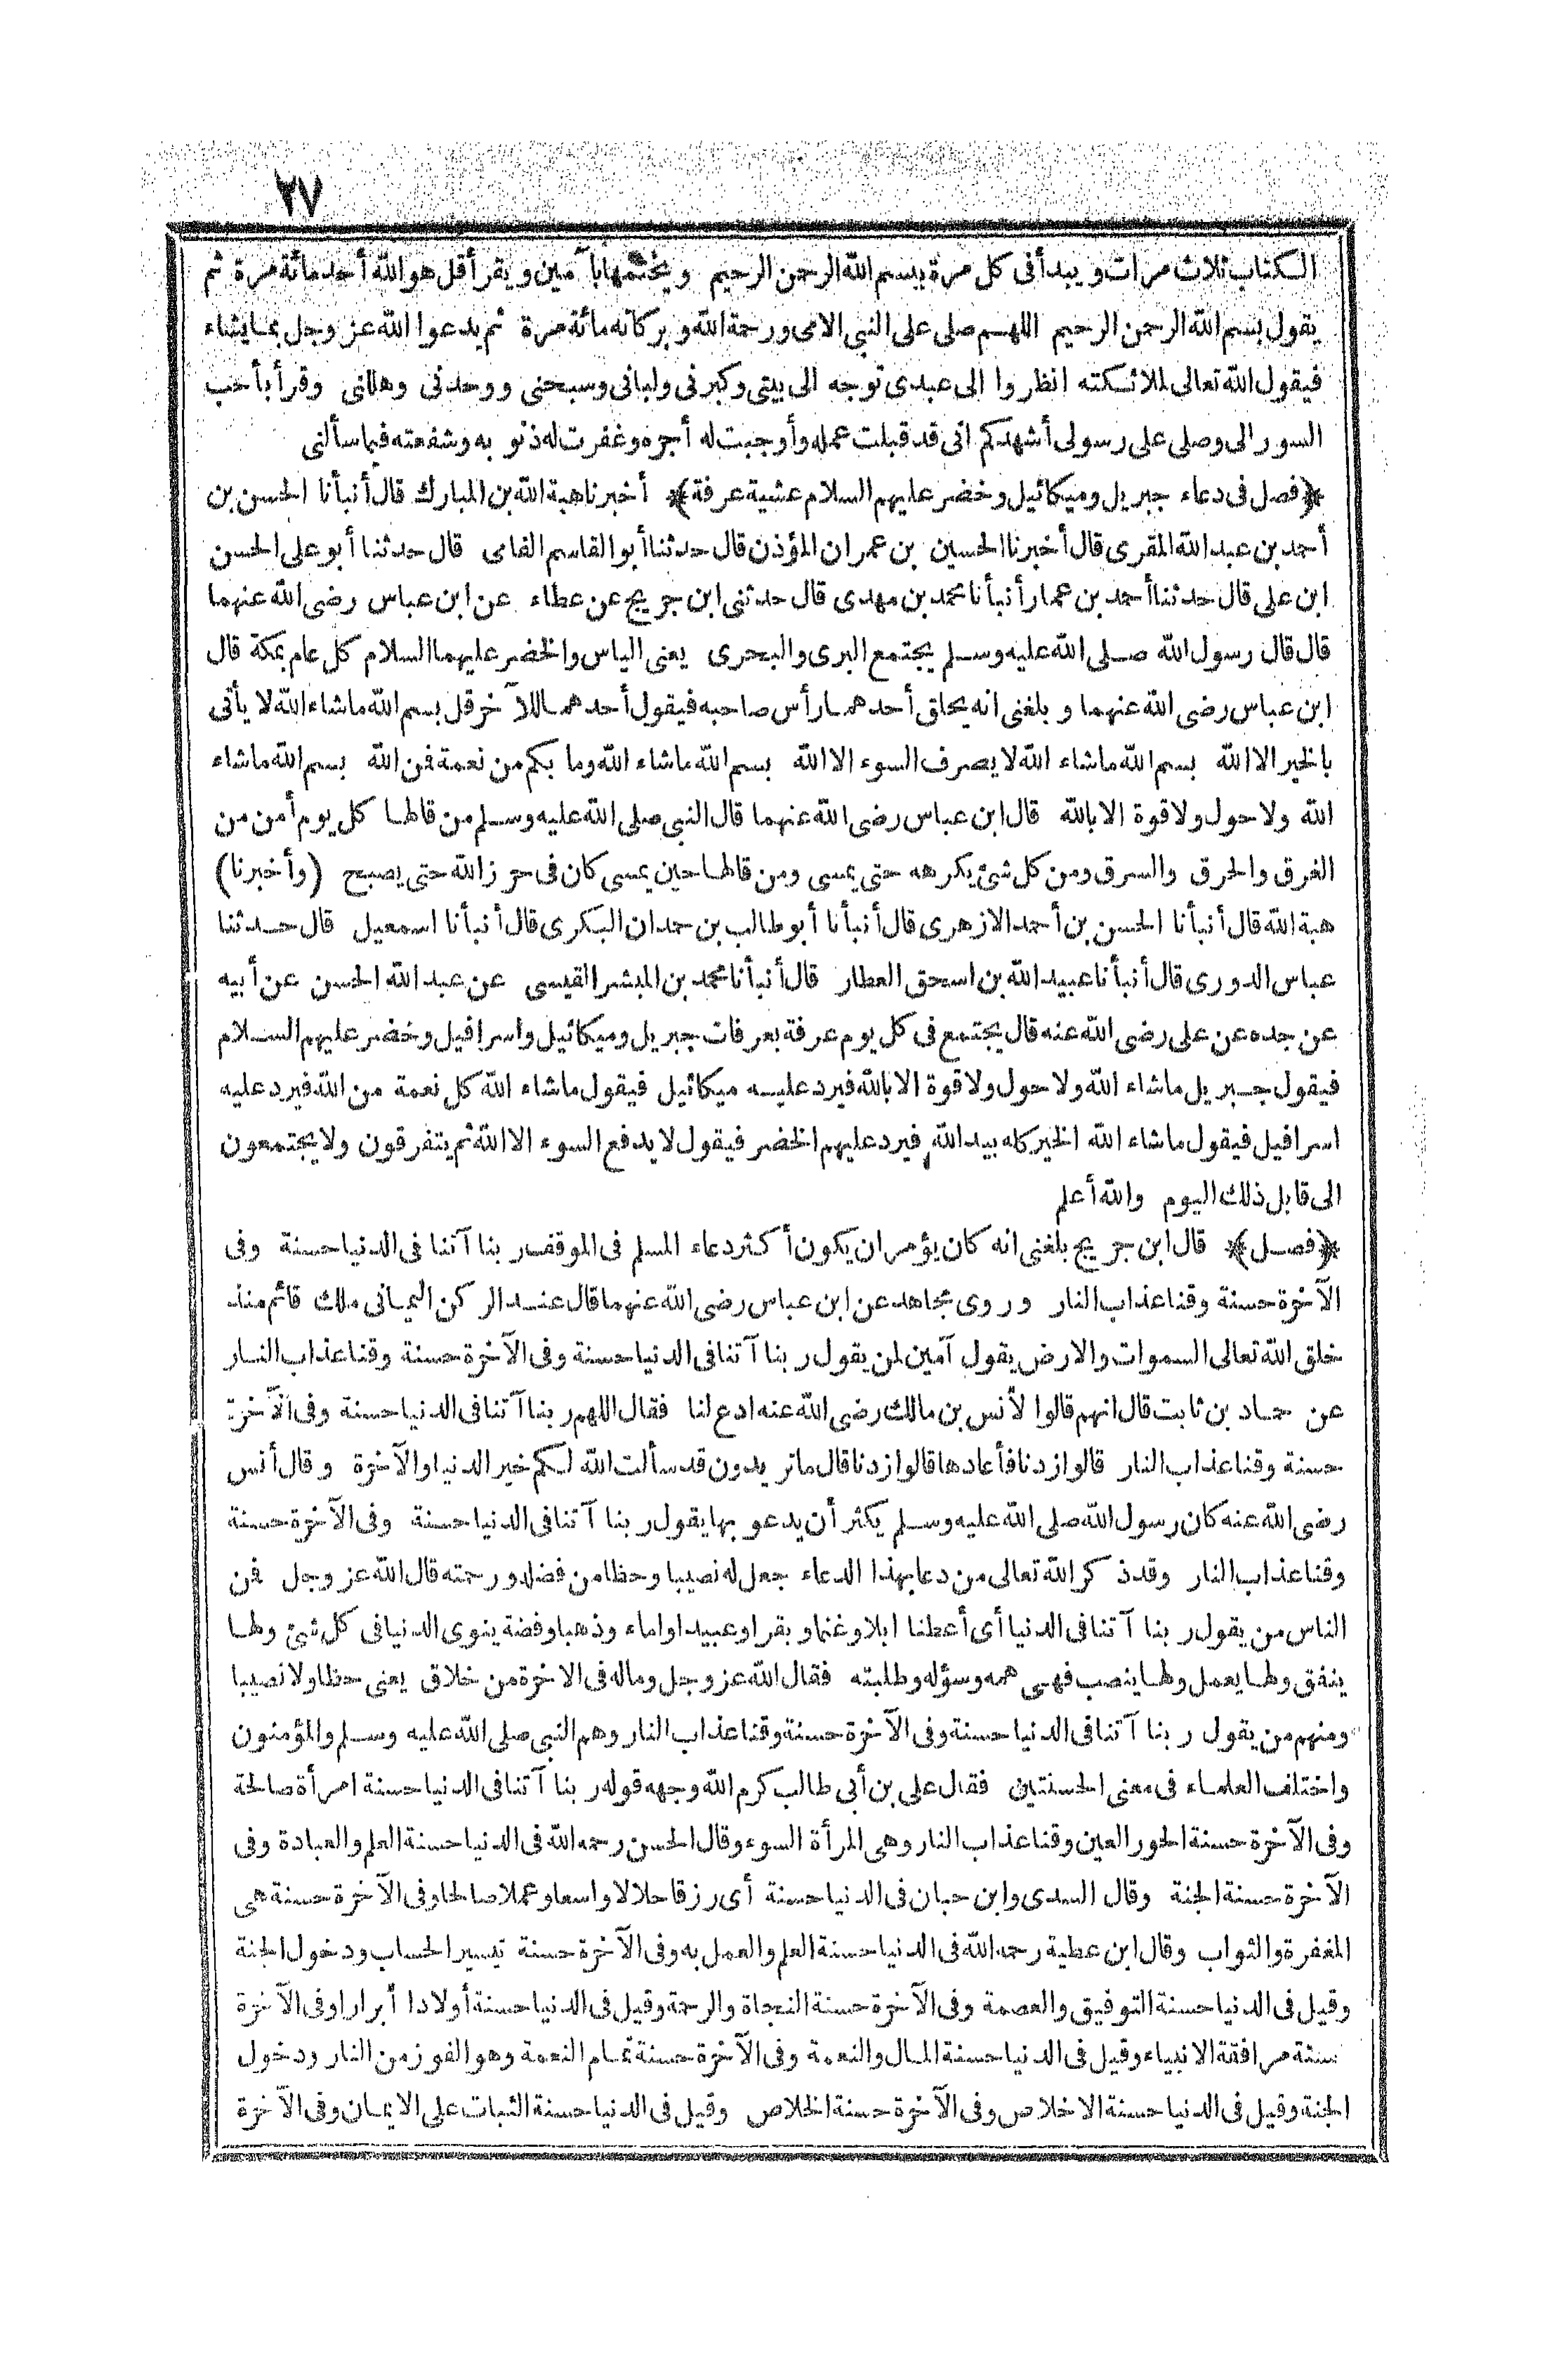 ٢٧
الكتاب ثلاث مرات ويبدأ في كل مرة ببسم الله الرحمن الرحيم ويختمها بآمين ويقرأ قل هو الله أحد مائة مرة ثم
يقول بسم الله الرحمن الرحيم اللهم صلى على النبي الامى ورحمة الله وبركاته مائة مرة ثم يدعوا الله عز وجل بما يشاء
فيقول الله تعالى لملائكته انظروا الى عبدى توجه الى بيتى وكبرنى ولبانى وسبحنى ووحدنى وهللنى وقرأ بأحب
السور الى وصلى على رسولى أشهدكم انى قد قبلت عمله وأوجبت له أجره وغفرت له ذنوبه وشفعته فيما سألنى
﴿فصل في دعاء جبريل وميكائيل وخضر عليهم السلام عشية عرفة﴾ أخبرنا هبة الله بن المبارك قال أنبأنا الحسن بن
أحمد بن عبد الله المقرى قال أخبرنا الحسين بن عمران المؤذن قال حدثنا أبو القاسم الفامى قال حدثنا أبو على الحسن
ابن على قال حدثنا أحمد بن عمار أنبأنا محمد بن مهدى قال حدثنى ابن جريج عن عطاء عن ابن عباس رضى الله عنهما
قال قال رسول الله صلى الله عليه وسلم يجتمع البرى والبحرى يعنى الياس والخضر عليهما السلام كل عام بمكة قال
ابن عباس رضى الله عنهما وبلغنى انه يحلق أحدهما رأس صاحبه فيقول أحدهما للآخر قل بسم الله ماشاء الله لا يأتى
بالخير الا الله بسم الله ماشاء الله لا يصرف السوء الا الله بسم الله ماشاء الله وما بكم من نعمة فمن الله بسم الله ماشاء
الله ولا حول ولا قوة الا بالله قال ابن عباس رضى الله عنهما قال النبي صلى الله عليه وسلم من قالها كل يوم أمن من
الغرق والحرق والسرق ومن كل شئ يكرهه حتى يمسى ومن قالها حين يمسى كان في حرز الله حتى يصبح (وأخبرنا)
هبة الله قال أنبأنا الحسن بن أحمد الازهرى قال أنبأنا أبو طالب بن حمدان البكرى قال أنبأنا اسمعيل قال حدثنا
عباس الدورى قال أنبأنا عبيد الله بن اسحق العطار قال أنبأنا محمد بن المبشر القيسى عن عبد الله الحسن عن أبيه
عن جده عن على رضى الله عنه قال يجتمع في كل يوم عرفة بعرفات جبريل وميكائيل واسرافيل وخضر عليهم السلام
فيقول جبريل ماشاء الله ولا حول ولا قوة الا بالله فيرد عليه ميكائيل فيقول ماشاء الله كل نعمة من الله فيرد عليه
اسرافيل فيقول ماشاء الله الخير كله بيد الله فيرد عليهم الخضر فيقول لا يدفع السوء الا الله ثم يتفرقون ولا يجتمعون
الى قابل ذلك اليوم والله أعلم
﴿فصل﴾ قال ابن جريج بلغنى انه كان يؤمر ان يكون أكثر دعاء المسلم في الموقف ربنا آتنا في الدنيا حسنة وفي
الآخرة حسنة وقنا عذاب النار وروى مجاهد عن ابن عباس رضى الله عنهما قال عند الركن اليمانى ملك قائم منذ
خلق الله تعالى السموات والارض يقول آمين لمن يقول ربنا آتنا في الدنيا حسنة وفي الآخرة حسنة وقنا عذاب النار
عن حماد بن ثابت قال انهم قالوا لأنس بن مالك رضى الله عنه ادع لنا فقال اللهم ربنا آتنا في الدنيا حسنة وفي الآخرة
حسنة وقنا عذاب النار قالوا زدنا فأعادها قالوا زدنا قال ماتريدون قد سألت الله لكم خير الدنيا والآخرة وقال أنس
رضى الله عنه كان رسول الله صلى الله عليه وسلم يكثر أن يدعو بها يقول ربنا آتنا في الدنيا حسنة وفي الآخرة حسنة
وقنا عذاب النار وقد ذكر الله تعالى من دعا بهذا الدعاء جعل له نصيبا وحظا من فضله ورحمته قال الله عز وجل فمن
الناس من يقول ربنا آتنا في الدنيا أى أعطنا ابلا وغنما وبقرا وعبيدا واماء وذهبا وفضة ينوى الدنيا في كل شئ ولها
ينفق ولها يعمل ولها ينصب فهى همه وسؤله وطلبته فقال الله عز وجل وماله في الاخرة من خلاق يعنى حظا ولا نصيبا
ومنهم من يقول ربنا آتنا في الدنيا حسنة وفي الآخرة حسنة وقنا عذاب النار وهم النبي صلى الله عليه وسلم والمؤمنون
واختلف العلماء في معنى الحسنتين فقال على بن أبى طالب كرم الله وجهه قوله ربنا آتنا في الدنيا حسنة امرأة صالحة
وفي الآخرة حسنة الحور العين وقنا عذاب النار وهى المرأة السوء وقال الحسن رحمه الله في الدنيا حسنة العلم والعبادة وفي
الآخرة حسنة الجنة وقال السدى وابن حبان في الدنيا حسنة أى رزقا حلالا واسعا وعملا صالحا وفي الآخرة حسنة هى
المغفرة والثواب وقال ابن عطية رحمه الله في الدنيا حسنة العلم والعمل به وفي الآخرة حسنة تيسير الحساب ودخول الجنة
وقيل في الدنيا حسنة التوفيق والعصمة وفي الآخرة حسنة النجاة والرحمة وقيل في الدنيا حسنة أولادا أبرارا وفي الآخرة
سنة مرافقة الانبياء وقيل في الدنيا حسنة المال والنعمة وفي الآخرة حسنة تمام النعمة وهو الفوز من النار ودخول
الجنة وقيل في الدنيا حسنة الاخلاص وفي الآخرة حسنة الخلاص وقيل في الدنيا حسنة الثبات على الايمان وفي الآخرة